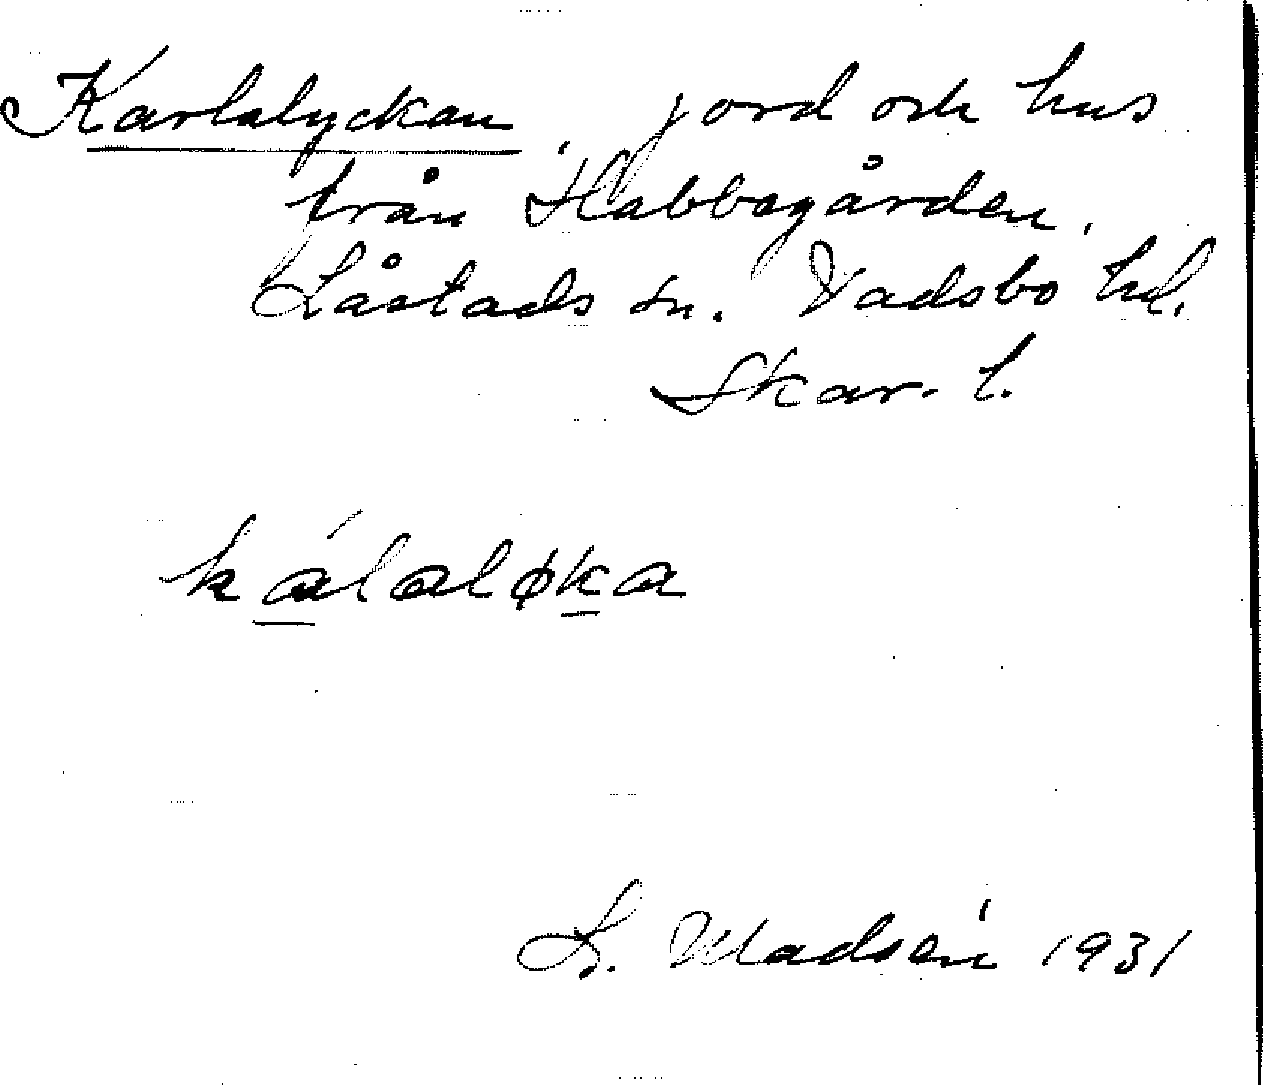 Karlalyckan, jord och hus
från Habbagården,
Låstads sn. Vadsbo hd.
Skar. l.
kálaløka
S. Madsén 1931